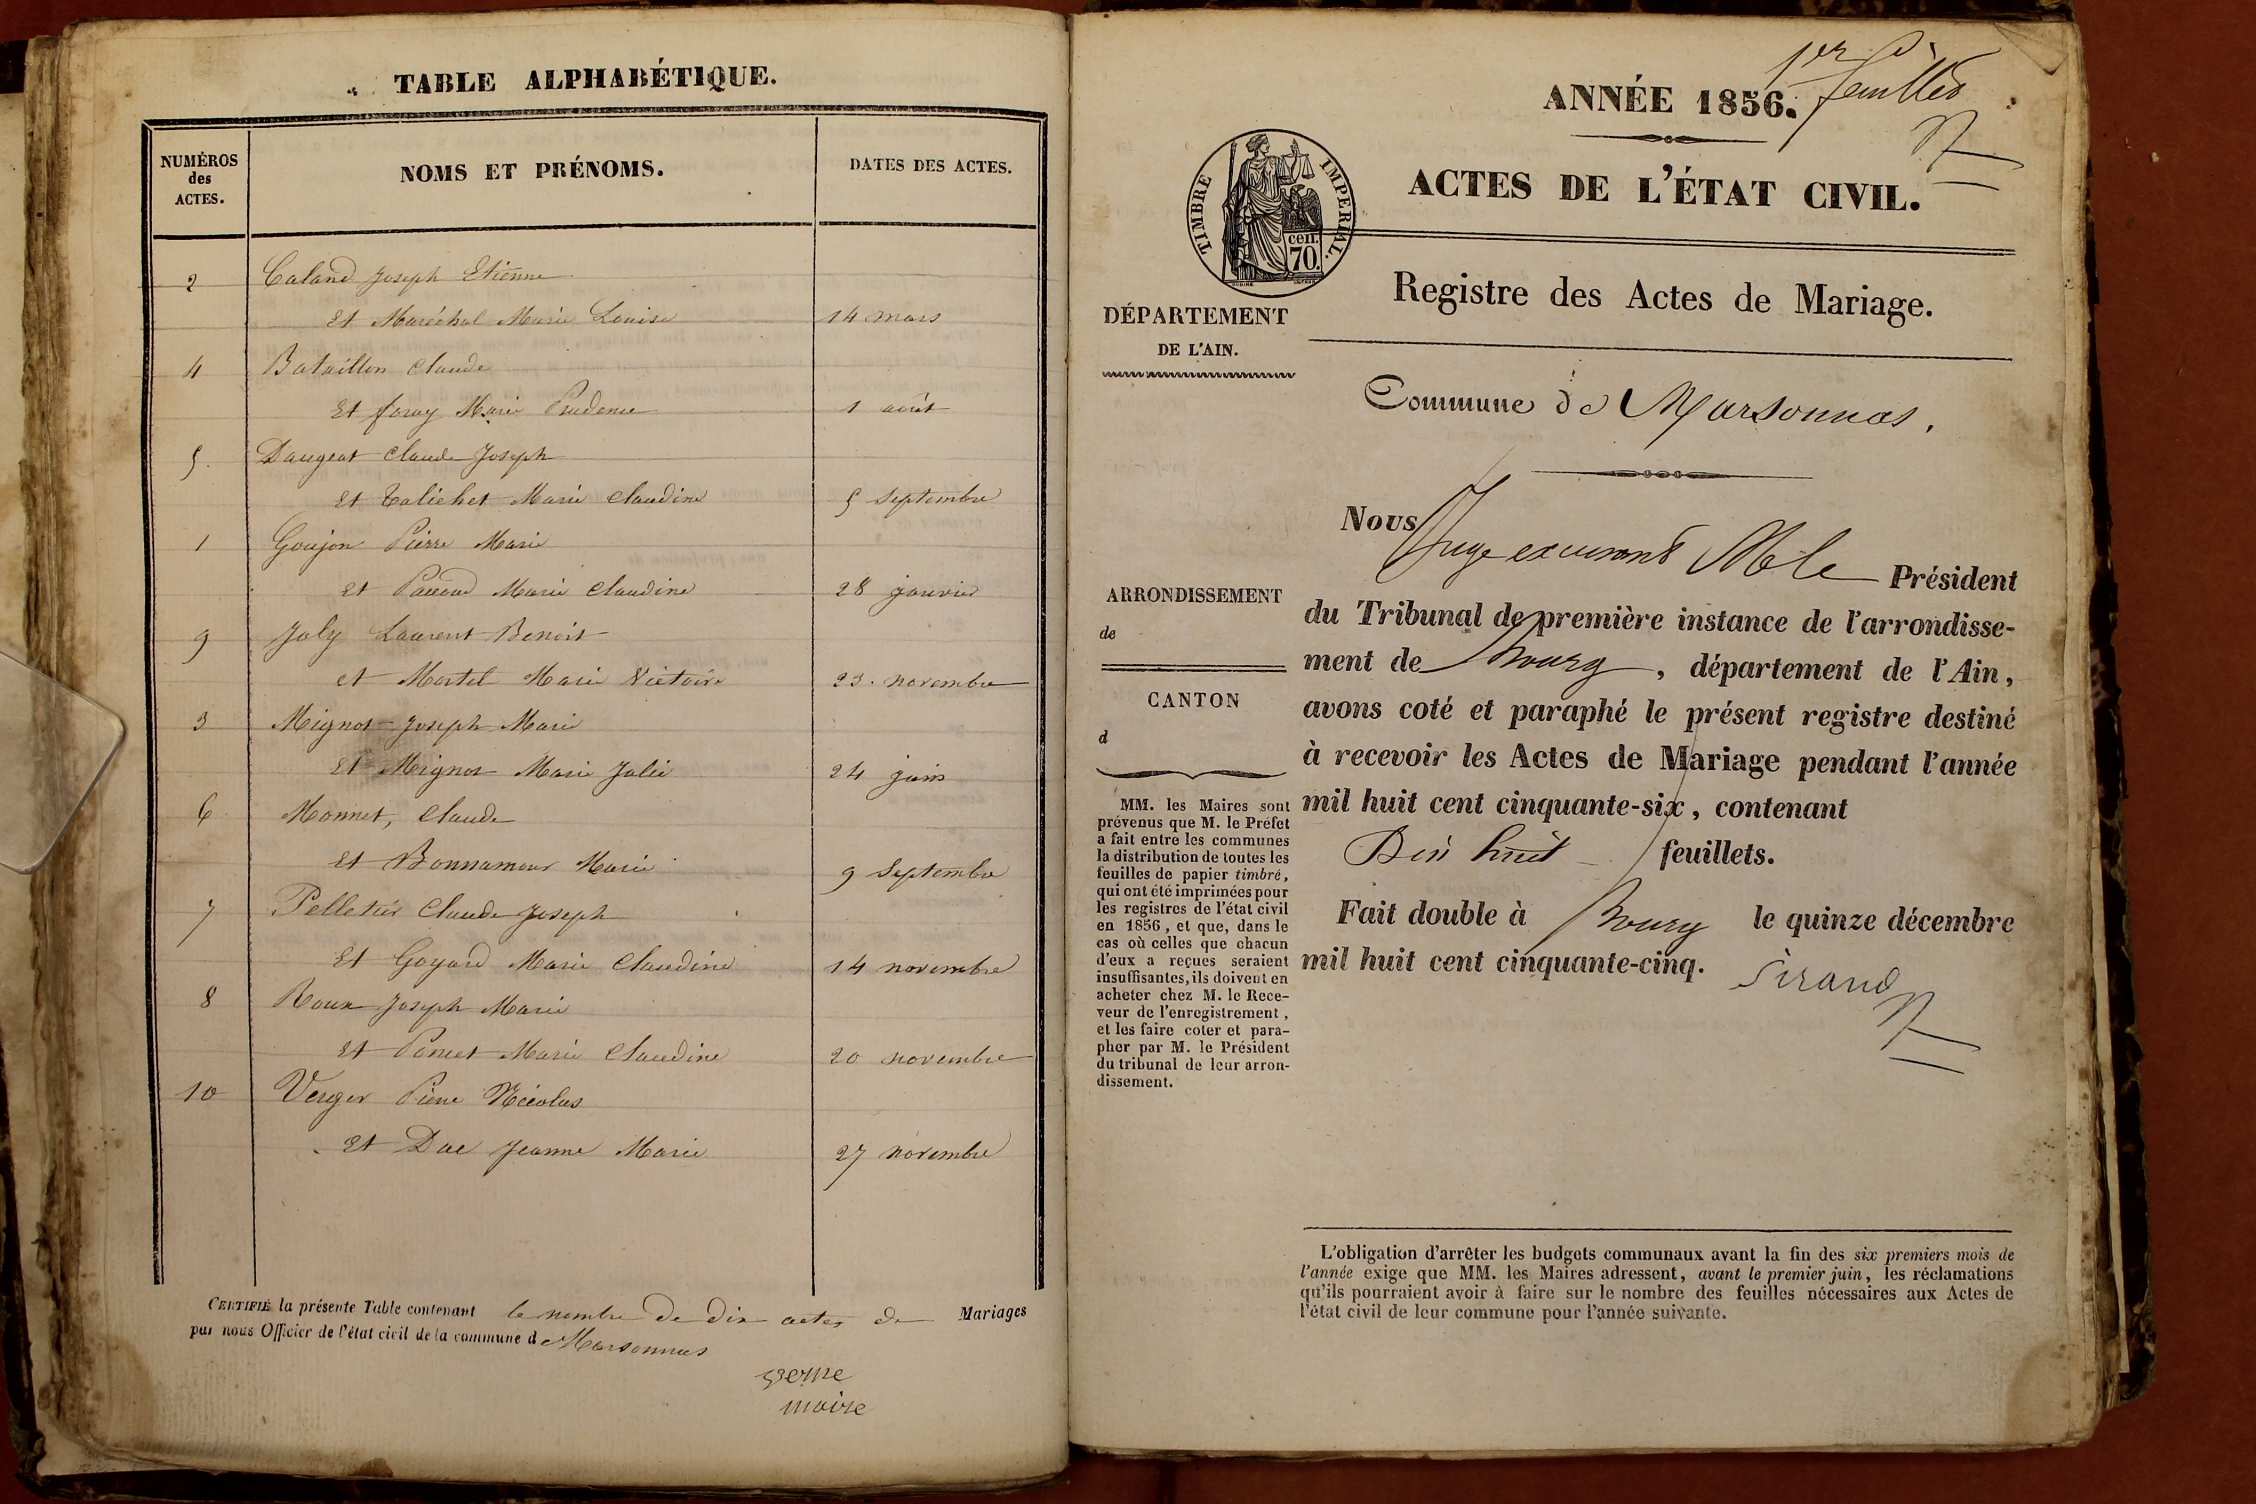 TABLE ALPHABÉTIQUE.
NUMÉROS des ACTES.
NOMS ET PRÉNOMS.
DATES DES ACTES.
2 Caland Joseph Etienne
et Maréchal Marie Louise 14 mars
4 Bataillon Claude
et Foray Marie Prudence 1 août
5 Daugeat Claude Joseph
et Talichet Marie Claudine 5 septembre
1 Goujon Pierre Marie
et Marie Claudine 28 janvier
9 Joly Laurent Benoit
et Martel Marie Victoire 23 novembre
3 Mignot Joseph Marie
et Mignot Marie Julie 24 juin
6 Monnet, Claude
et Bonnamour Marie 9 septembre
7 Pelletier Claude Joseph
et Goyard Marie Claudine 14 novembre
8 Roux Joseph Marie
et Poncet Marie Claudine 20 novembre
10 Verger Pierre Nicolas
et Duc Jeanne Marie 27 novembre
CERTIFIÉ la présente Table contenant le nombre de dix actes de Mariages
par nous Officier de l'état civil de la commune de Marsonnas
maire
1er feuillet
ANNÉE 1856.
ACTES DE L'ÉTAT CIVIL.
TIMBRE IMPERIAL.
cen. 70.
Registre des Actes de Mariage.
DÉPARTEMENT
DE L'AIN.
Commune de Marsonnas.
ARRONDISSEMENT
de
CANTON
d
MM. les Maires sont
prévenus que M. le Préfet
a fait entre les communes
la distribution de toutes les
feuilles de papier timbré,
qui ont été imprimées pour
les registres de l'état civil
en 1856, et que, dans le
cas où celles que chacun
d'eux a reçues seraient
insuffisantes, ils doivent en
acheter chez M. le Rece-
veur de l'enregistrement,
et les faire coter et para-
pher par M. le Président
du tribunal de leur arron-
dissement.
Nous Juge M le Président
du Tribunal de première instance de l'arrondisse-
ment de Bourg, département de l'Ain,
avons coté et paraphé le présent registre destiné
à recevoir les Actes de Mariage pendant l'année
mil huit cent cinquante-six, contenant
Dix huit feuillets.
Fait double à Bourg le quinze décembre
mil huit cent cinquante-cinq.
Sirand
L'obligation d'arrêter les budgets communaux avant la fin des six premiers mois de
l'année exige que MM. les Maires adressent, avant le premier juin, les réclamations
qu'ils pourraient avoir à faire sur le nombre des feuilles nécessaires aux Actes de
l'état civil de leur commune pour l'année suivante.